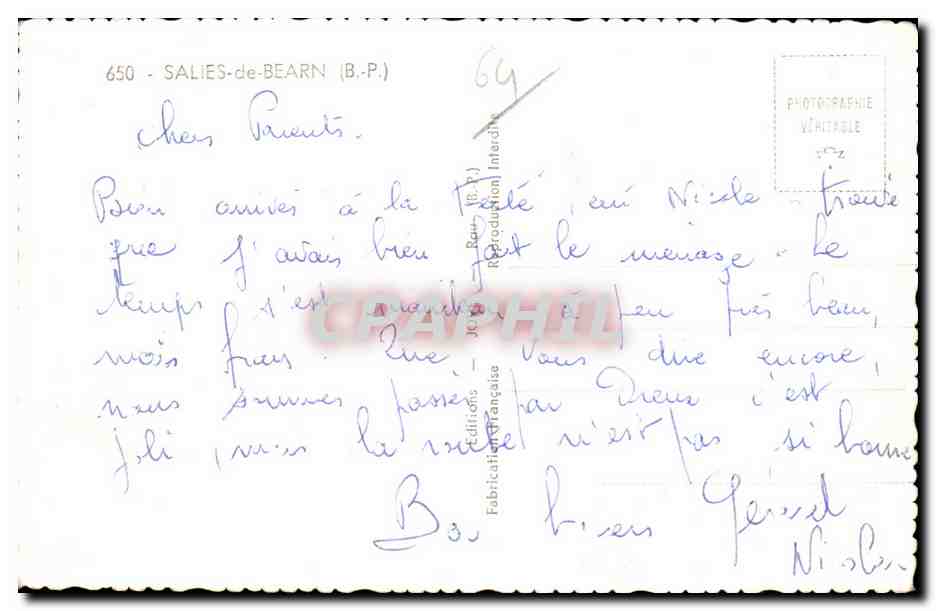 650 - SALIES-de-BEARN (B.-P.)
64
PHOTOGRAPHIE
VÉRITABLE
Chers Parents.
Bien arrivés à la Ferté, où Nicole trouve
que j'avais bien fait le ménage. Le
temps s'est maintenu à peu près beau,
mais frais. Que vous dire encore,
nous sommes passés par Dreux c'est
joli, mais la route n'est pas si bonne
Bons baisers Gérard
Nicole
Editions — JOVE — Pau (B. P.)
Fabrication Française Reproduction Interdite
CPAPHIL